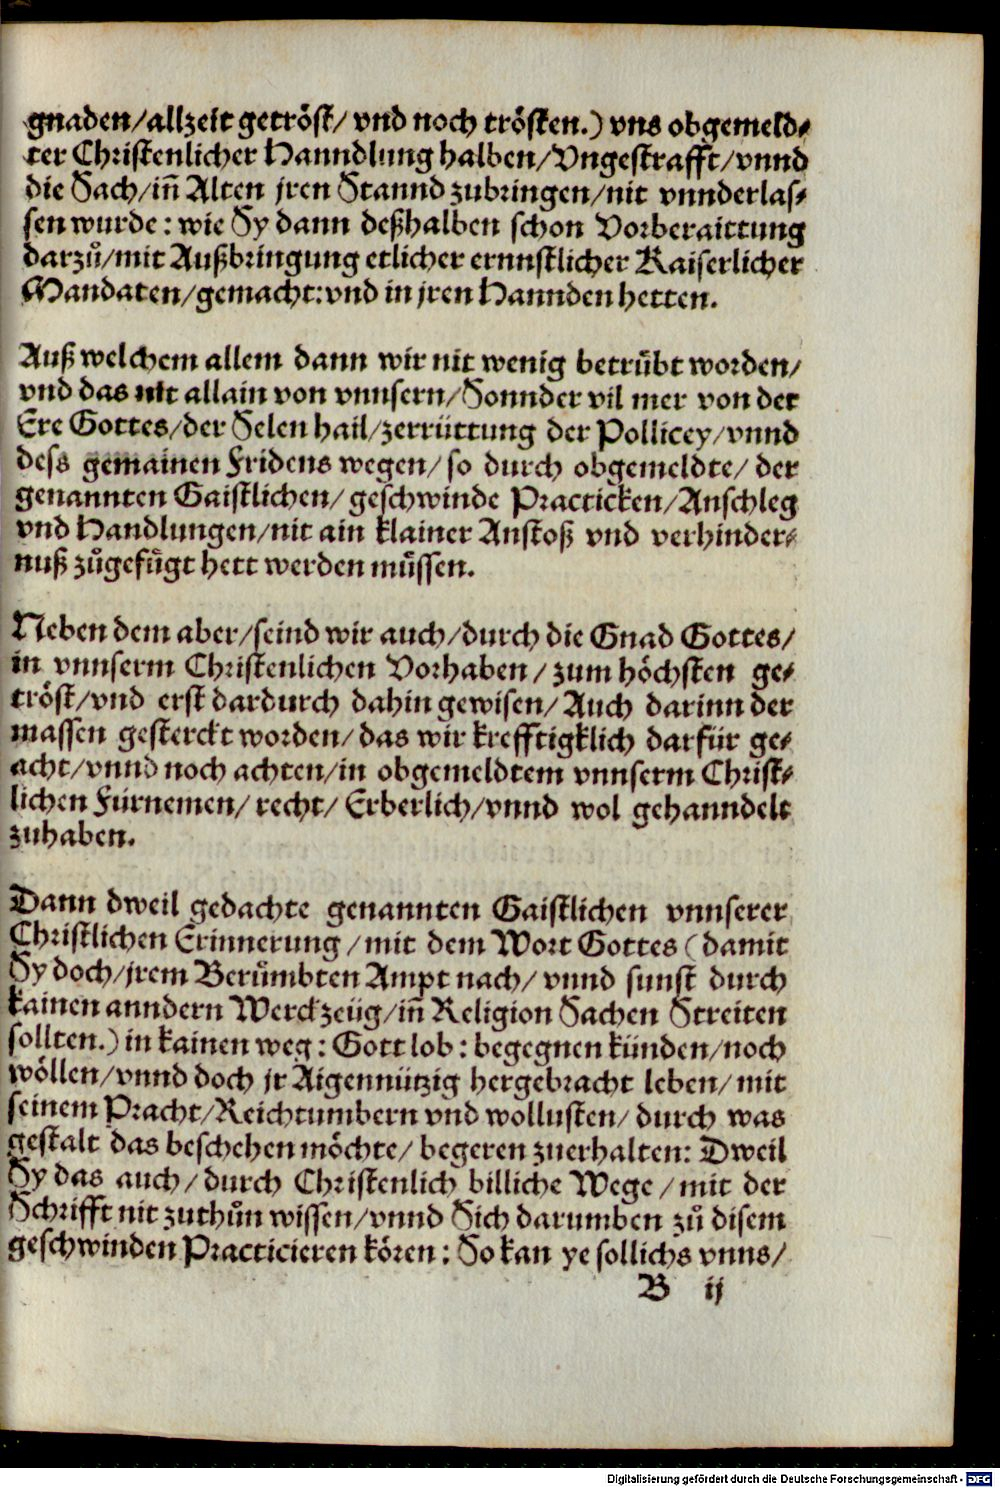 gnaden/allzeit getröst/ vnd noch trösten.) vns obgemeld-
ter Christenlicher Hanndlung halben/Vngestrafft/vnnd
die Sach/iñ Alten jren Stannd zubringen/nit vnnderlas-
sen wurde: wie Sy dann deßhalben schon Vorberaittung
darzů/mit Außbringung etlicher ernnstlicher Kaiserlicher
Mandaten/gemacht:vnd in jren Hannden hetten.

Auß welchem allem dann wir nit wenig betrůbt worden/
vnd das nit allain von vnnsern/Sonnder vil mer von der
Ere Gottes/der Selen hail/zerrüttung der Pollicey/vnnd
dess gemainen Fridens wegen/ so durch obgemeldte/ der
genannten Gaistlichen/ geschwinde Practicken/Anschleg
vnd Handlungen/nit ain klainer Anstoß vnd verhinder-
nuß zůgefůgt hett werden můssen.

Neben dem aber/seind wir auch/durch die Gnad Gottes/
in vnnserm Christenlichen Vorhaben/ zum höchsten ge-
tröst/vnd erst dardurch dahin gewisen/ Auch darinn der
massen gesterckt worden/ das wir krefftigklich darfür ge-
acht/vnnd noch achten/in obgemeldtem vnnserm Christ-
lichen Fürnemen/ recht/ Erberlich/vnnd wol gehanndelt
zuhaben.

Dann dweil gedachte genannten Gaistlichen vnnserer
Christlichen Erinnerung/mit dem Wort Gottes (damit
Sy doch/jrem Berůmbten Ampt nach/ vnnd sunst durch
kainen anndern Werckzeüg/iñ Religion Sachen Streiten
sollten.) in kainen weg: Gott lob: begegnen künden/noch
wöllen/vnnd doch jr Aigennützig hergebracht leben/mit
seinem Pracht/Reichtumbern vnd wollusten/ durch was
gestalt das beschehen möchte/ begeren zuerhalten: Dweil
Sy das auch/ durch Christenlich billiche Wege/mit der
Schrifft nit zuthůn wissen/vnnd Sich darumben zů disem
geschwinden Practicieren kören: So kan ye sollichs vnns/
B ij
Digitalisierung gefördert durch die Deutsche Forschungsgemeinschaft - DFG